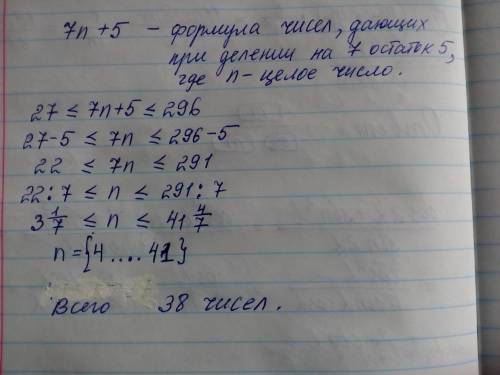 7n+5 – формула чисел, дающих
при делении на 7 остаток 5,
где n – целое число.
27 ≤ 7n+5 ≤ 296
27-5 ≤ 7n ≤ 296-5
22 ≤ 7n ≤ 291
22:7 ≤ n ≤ 291:7
3 1/7 ≤ n ≤ 41 4/7
n={4....41}
Всего 38 чисел.